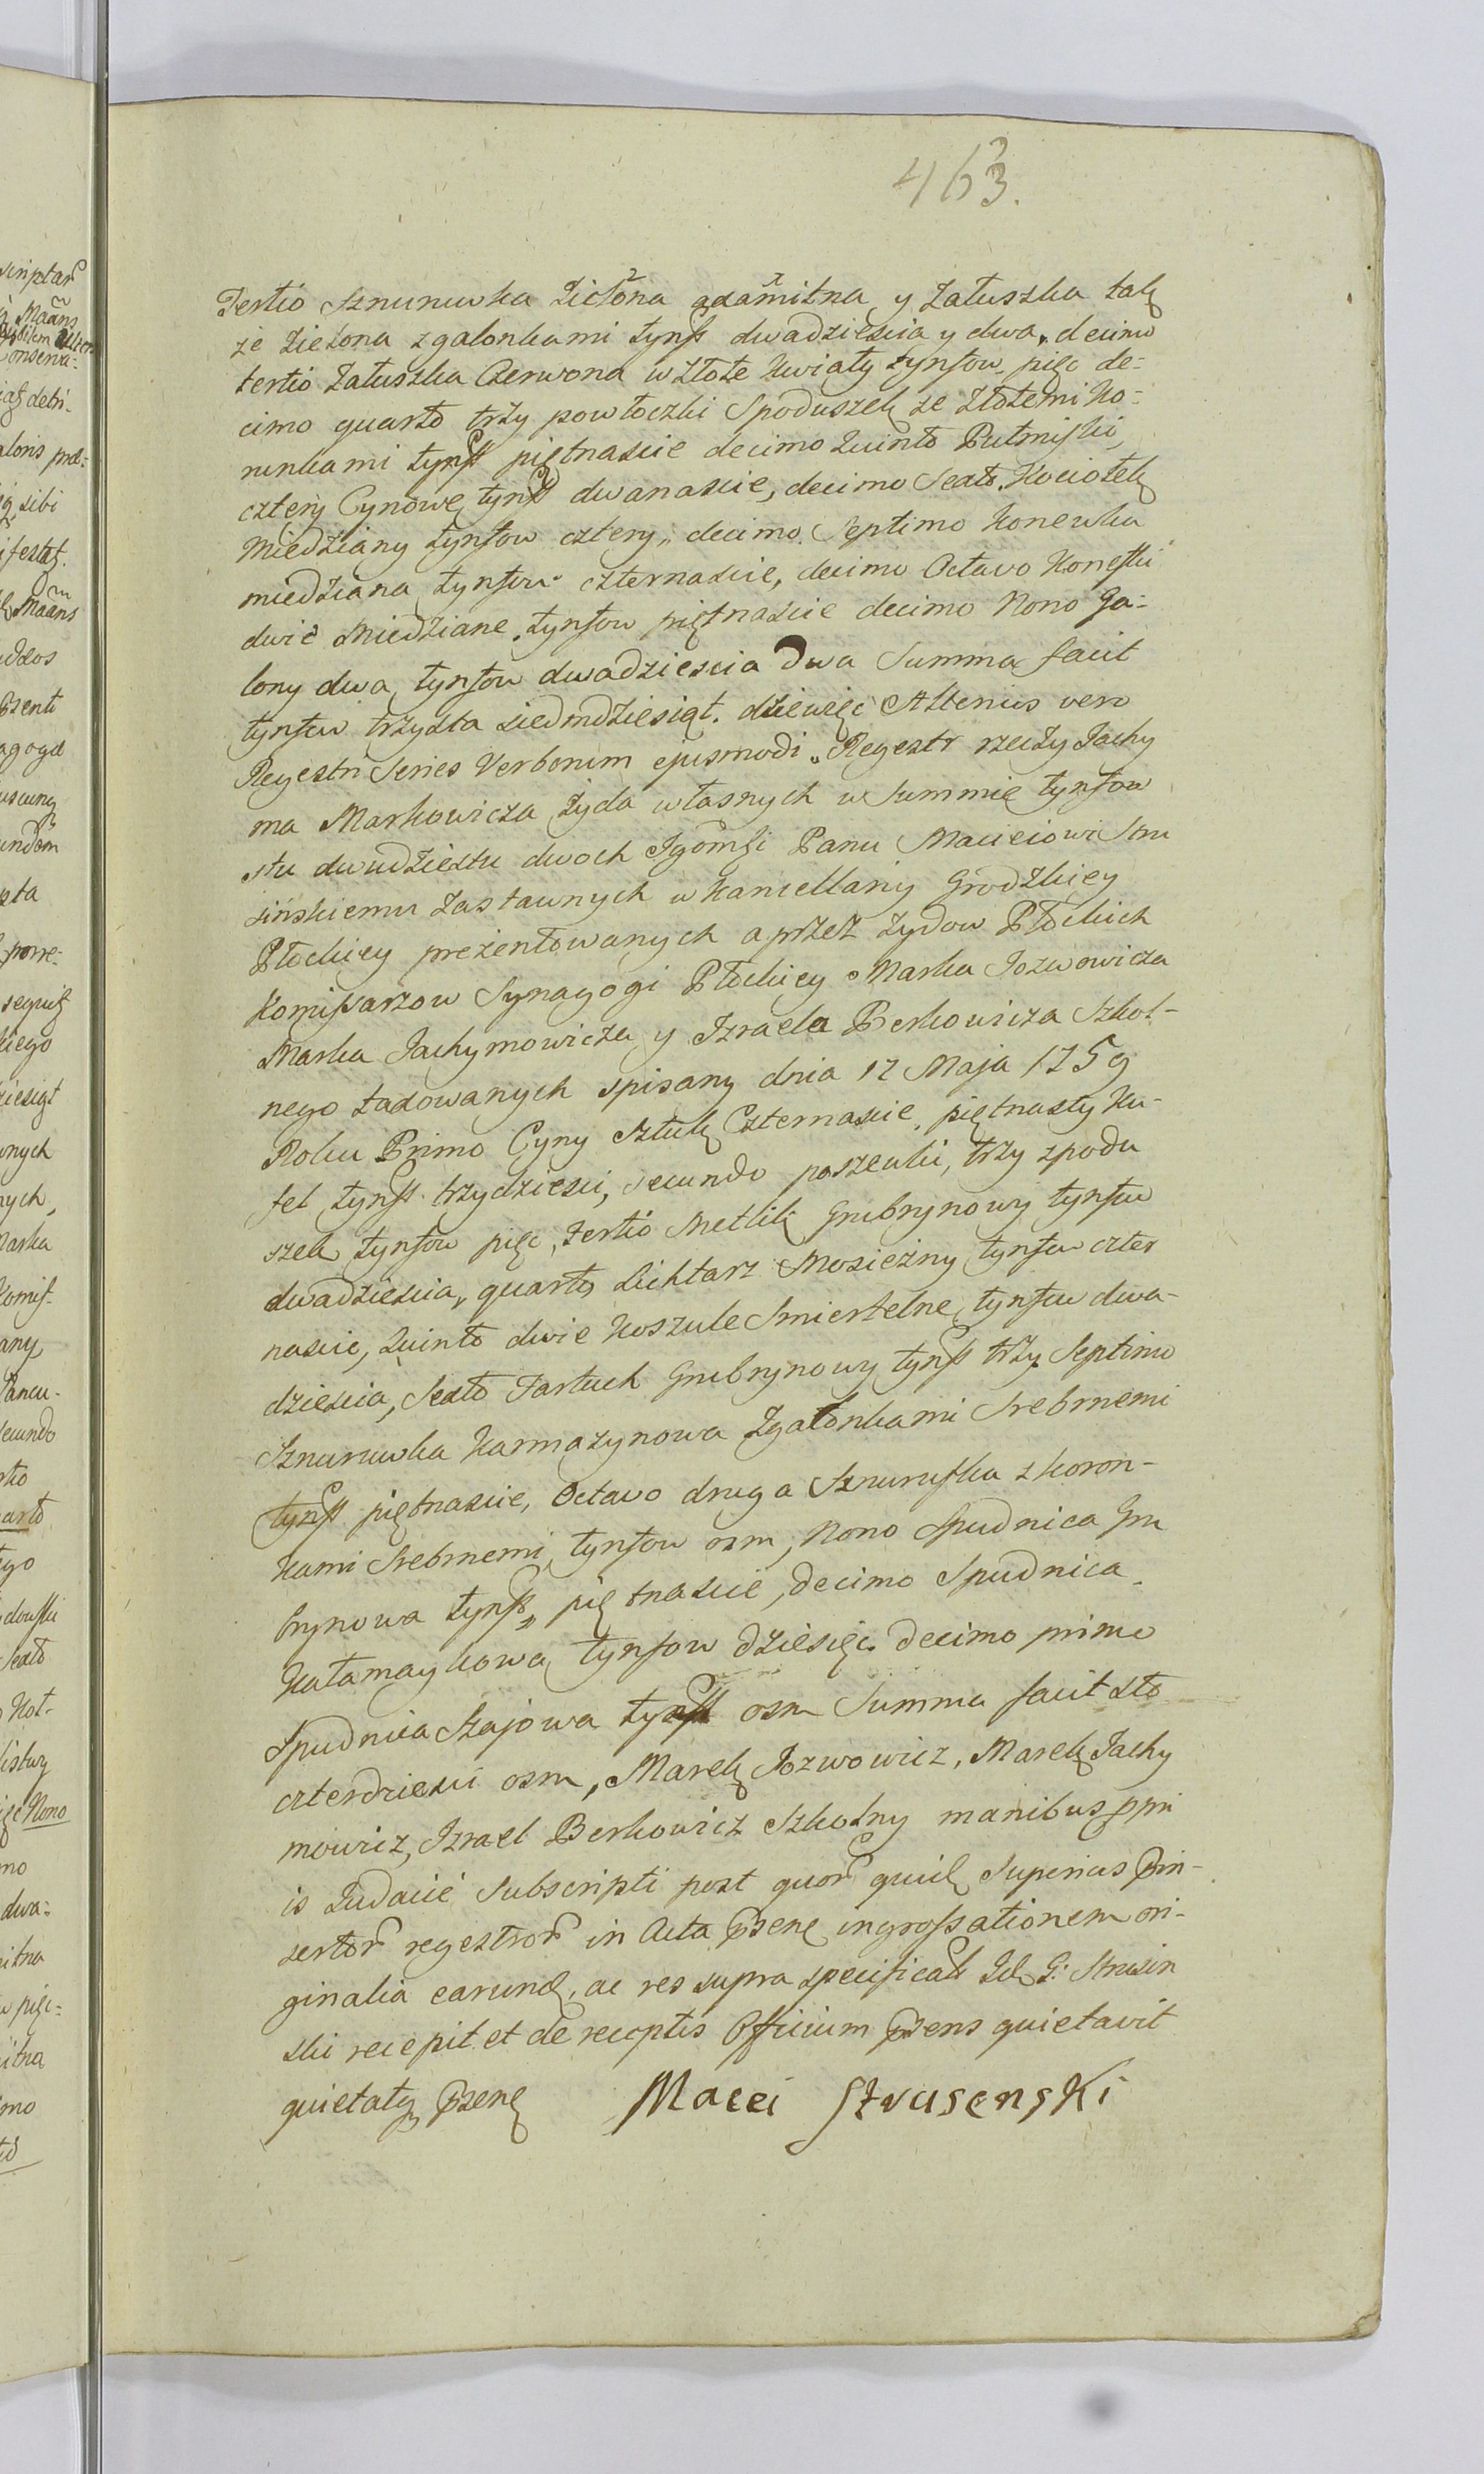 463.
Tertio Sznurowka Zielona adamitna y Załuszka tak
że Zielona z galonkami tynff dwadziescia y dwa, decimo
tertio Załuszka Czerwona w Złote Kwiaty tynfow pięc de-
cimo quarto trzy powłoczki Spoduszek ze Złotemi Ko-
runkami tynff piętnascie decimo Quinto Putmiski
cztery Cynowe tynff dwanascie, decimo Sexto Kociołek
Miedziany tynfow cztery, decimo Septimo Konewka
miedziana tynfow czternascie, decimo Octavo Konefki
dwie Miedziane tynfow piętnascie decimo Nono Ga-
lony dwa tynfow dwadziescia Dwa Summa facit
tynfow trzysta siedmdziesiąt dziewięc Alterius vero
Regestri Series Verborum ejusmodi. Regestr rzeczy Jachy
ma Markowicza Żyda własnych w Summie tynfow
stu dwudziestu dwoch Jgomsi Panu Macieiowi Stru
sinskiemu Zastawnych w Kancellaryi Grodzkiey
Płockiey prezentowanych a przez Zydow Płockich
Komissarzow Synagogi Płockiey Marka Jozwowicza
Marka Jachymowicza y Izraela Berkowicza Szkol-
nego taxowanych spisany dnia 12 Maja 1759
Roku Primo Cyny Sztuk Czternascie, piętnasty Ku-
fel tynff trzydziesci, Secundo poszewki trzy spodu
szek tynfow pięc, Tertio Metlik Grubrynowy tynfow
dwadziescia, quarto Lichtarz Mosiezny tynfow czter
nascie, Quinto dwie Koszule Smiertelne tynfow dwa-
dziescia, Sexto Fartuch Grubrynowy tynff trzy Septimo
Sznurowka Karmazynowa Zgalonkami Srebrnemi
tynff piętnascie, Octavo druga Sznurufka z koron-
kami Srebrnemi tynfow osm, Nono Spudnica Gru
brynowa tynff piętnascie, decimo Spudnica
Kałamaykowa tynfow dziesięc. decimo primo
Spudnica Szajowa tynff osm Summa facit sto
czterdziesci osm, Marek Jozwowicz, Marek Jachy
mowicz, Izrael Berkowicz Szkolny manibus ppri
is Judaicé Subscripti post quor quid Superius pin-
sertor regestror in Acta psene ingrossationem ori-
ginalia earund, ac res supra specificat Idl G: Strusin
ski recepit et de receptis Officium psens quietavit
quietatq psene Macei Strusenski